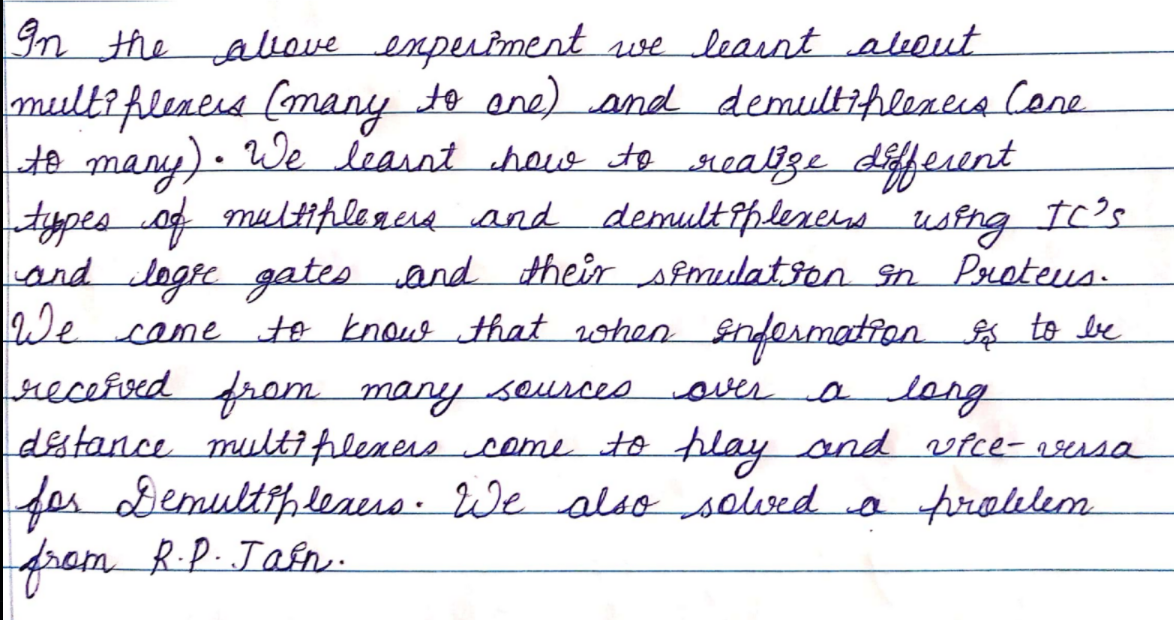 In the above experiment we learnt about
multiplexers (many to one) and demultiplexers (one
to many). We learnt how to realize different
types of multiplexers and demultiplexers using IC's
and logic gates and their simulation in Proteus.
We came to know that when information is to be
received from many sources over a long
distance multiplexers come to play and vice-versa
for Demultiplexers. We also solved a problem
from R.P. Jain.